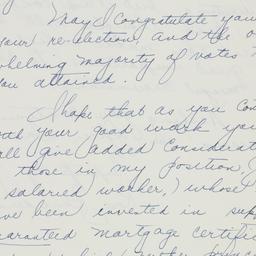 May I congratulate you
your re-election, and the o
whelming majority of votes
you attained.
I hope that as you con
with your good work you
all give added considerat
those in my position,
salaried worker,) whose
ve been invested in sup
guaranteed mortgage certifi